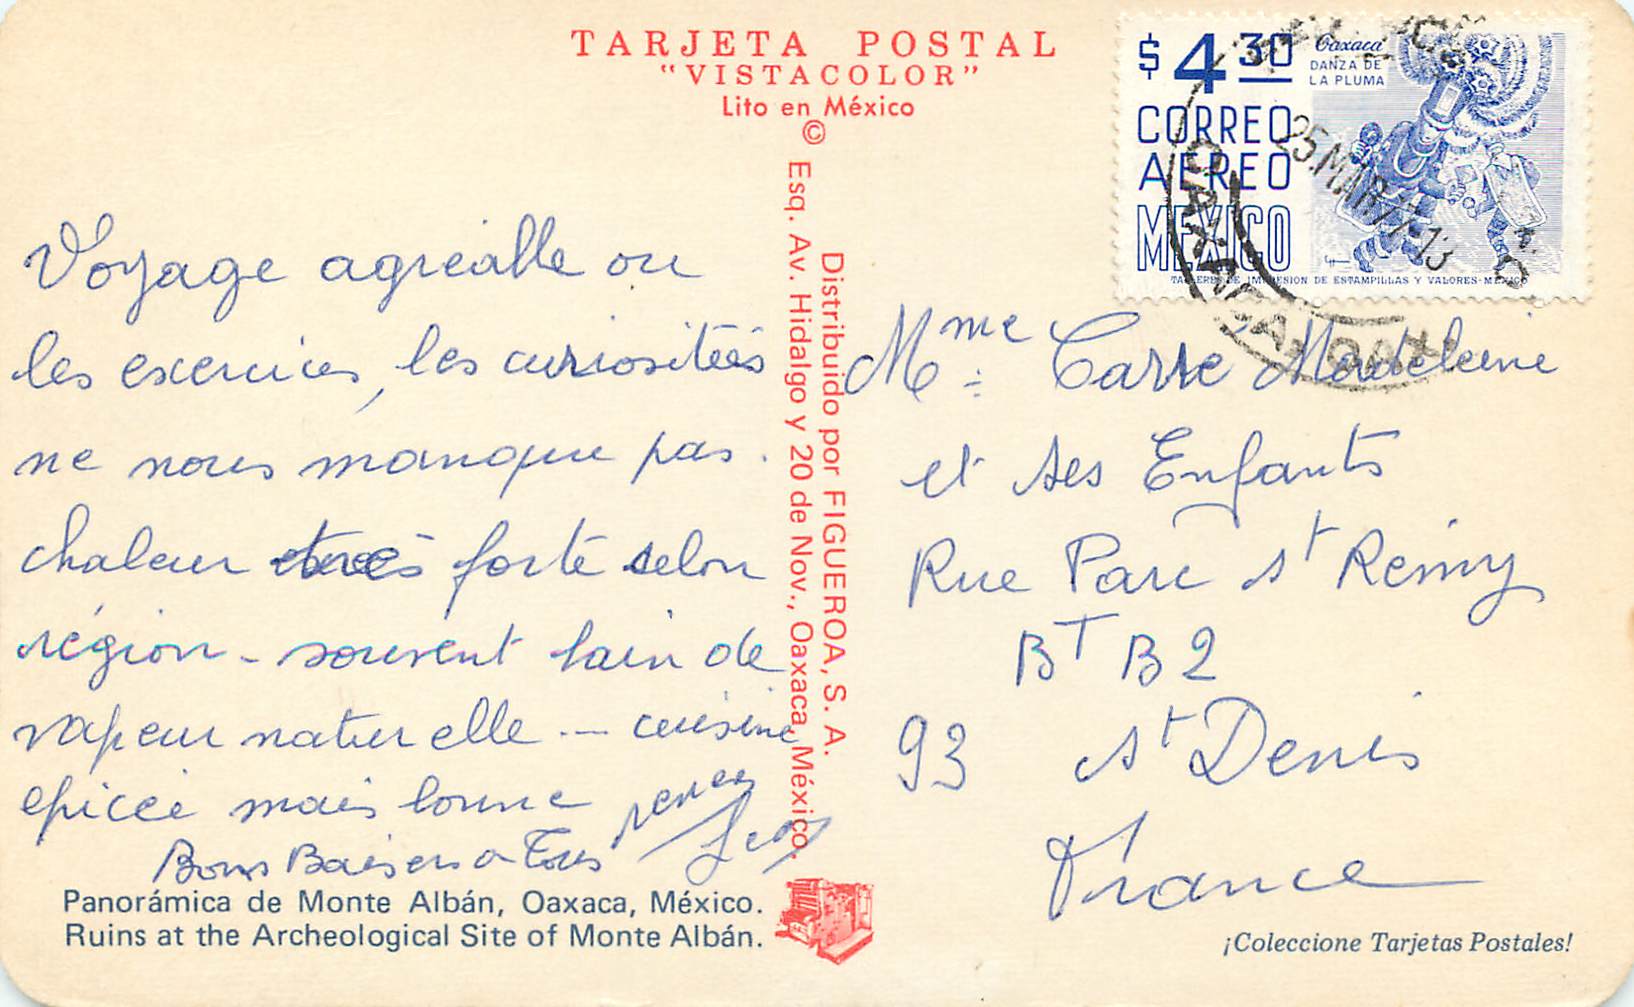 TARJETA POSTAL
"VISTACOLOR"
Lito en México
©
Distribuido por FIGUEROA, S. A.
Esq. Av. Hidalgo y 20 de Nov., Oaxaca, México.
$ 4 30
Oaxaca
DANZA DE
LA PLUMA
CORREO
AEREO
MEXICO
TALLERES DE IMPRESION DE ESTAMPILLAS Y VALORES-MEXICO
25.MAR.77-13
OAXACA, OAX.
Voyage agréable ou
les exercices, les curiositées
ne nous manque pas.
chaleur très forte selon
région - souvent bain de
vapeur naturelle --- cuisine
epicée mais bonne
Bons Baisers a Tous
Mme Carre Madeleine
et ses Enfants
Rue Parc St Rémy
BT B2
93 St Denis
France
Panorámica de Monte Albán, Oaxaca, México.
Ruins at the Archeological Site of Monte Albán.
¡Coleccione Tarjetas Postales!